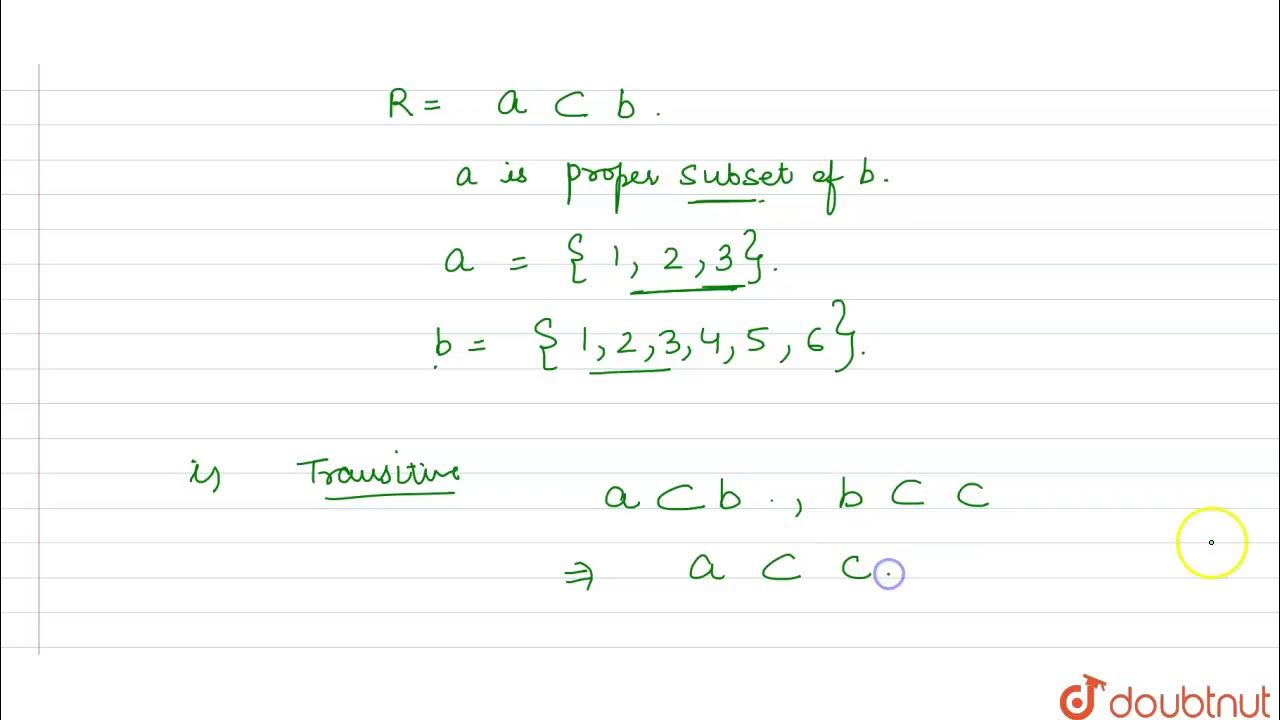 R = a ⊂ b.
a is proper subset of b.
a = { 1, 2, 3}.
b = { 1, 2, 3, 4, 5, 6}.
is Transitive
a ⊂ b ., b ⊂ c
⇒ a ⊂ c.
doubtnut